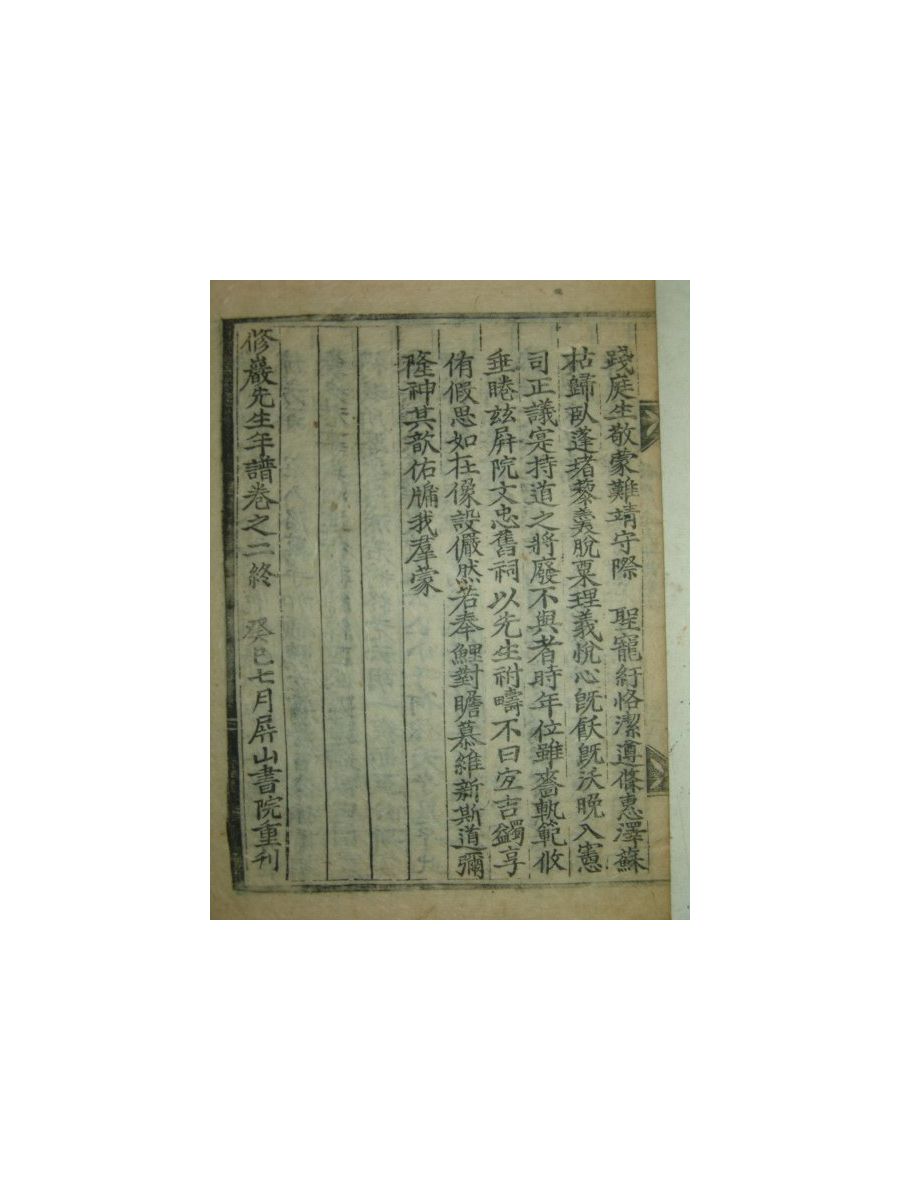 踐庭生敬蒙難靖守際　聖寵紆恪潔遵條惠澤蘇
枯歸臥蓬堵藜羹脫粟理義悅心旣飫旣沃晚入憲
司正議寔持道之將廢不與者時年位雖嗇軌範攸
垂睠玆屛院文忠舊祠以先生祔疇不曰宜吉蠲享
侑優思如在像設儼然若奉鯉對瞻慕維新斯道彌
隆神其歆佑牖我羣蒙
修巖先生年譜卷之二終　癸巳七月屛山書院重刊